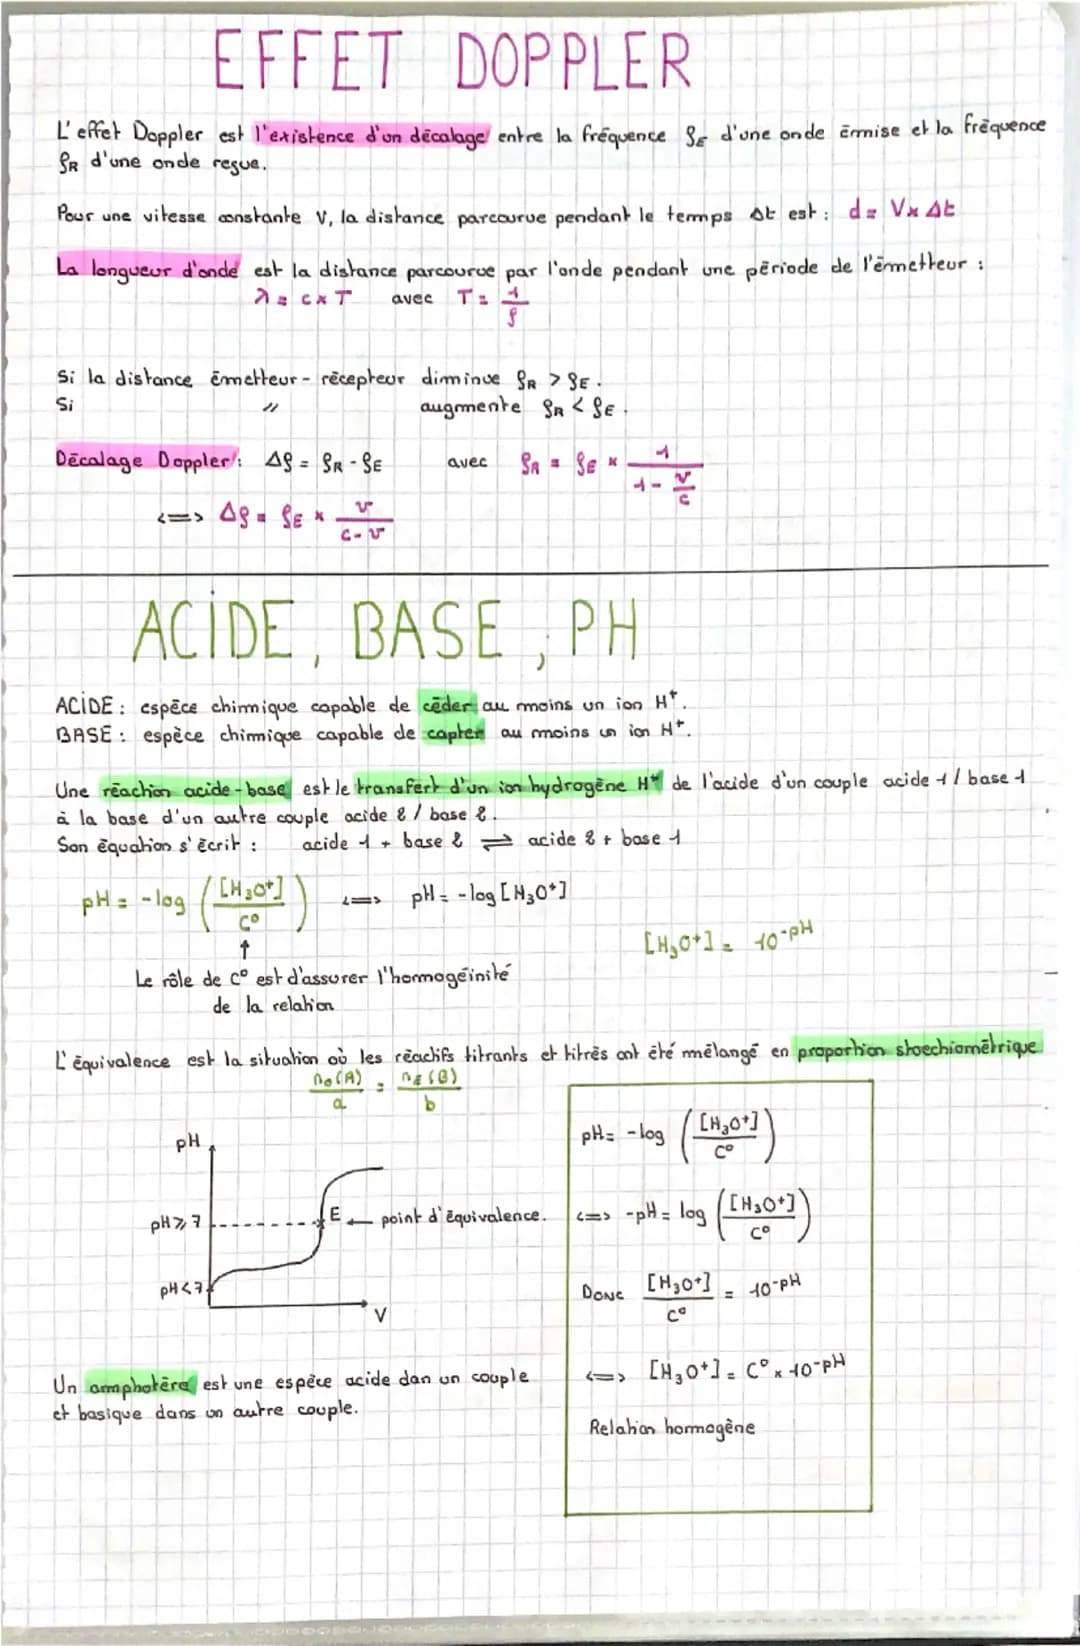 EFFET DOPPLER
L'effet Doppler est l'existence d'un décalage entre la fréquence fE d'une onde émise et la fréquence
fR d'une onde reçue.
Pour une vitesse constante V, la distance parcourue pendant le temps Δt est : d = V x Δt
La longueur d'onde est la distance parcourue par l'onde pendant une période de l'émetteur :
λ = c x T avec T = 1/f
Si la distance émetteur - récepteur diminue fR > fE.
Si " augmente fR < fE.
Décalage Doppler : Δf = fR - fE avec fR = fE x 1/(1 - v/c)
<=> Δf = fE x v/(c - v)
ACIDE, BASE, PH
ACIDE : espèce chimique capable de céder au moins un ion H⁺.
BASE : espèce chimique capable de capter au moins un ion H⁺.
Une réaction acide-base est le transfert d'un ion hydrogène H⁺ de l'acide d'un couple acide 1 / base 1
à la base d'un autre couple acide 2 / base 2.
Son équation s'écrit : acide 1 + base 2 ⇌ acide 2 + base 1
pH = -log ([H₃O⁺]/C°) <=> pH = -log [H₃O⁺]
[H₃O⁺] = 10⁻ᵖᴴ
↑
Le rôle de C° est d'assurer l'homogéinité
de la relation
L'équivalence est la situation où les réactifs titrants et titrés ont été mélangé en proportion stoechiométrique
n₀(A)/a = nE(B)/b
pH
pH ⩾ 7
E ← point d'équivalence.
pH < 7
V
Un amphotère est une espèce acide dan un couple
et basique dans un autre couple.
pH = -log ([H₃O⁺]/C°)
<=> -pH = log ([H₃O⁺]/C°)
Donc [H₃O⁺]/C° = 10⁻ᵖᴴ
<=> [H₃O⁺] = C° x 10⁻ᵖᴴ
Relation homogène